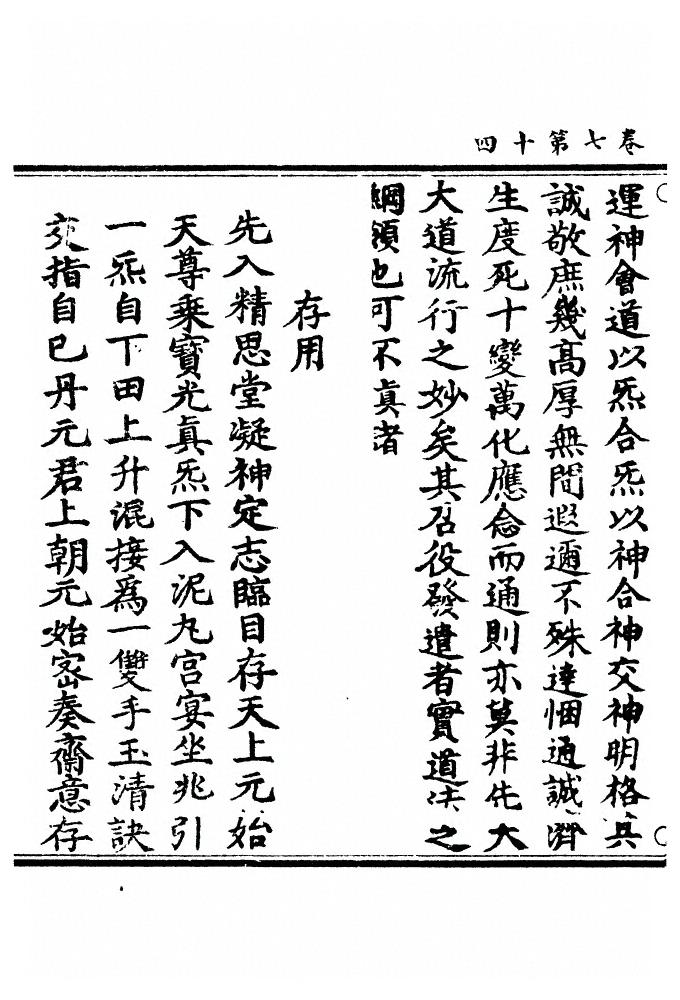 卷七第十四
運神會道以炁合炁以神合神交神明格其
誠敬庶幾高厚無間遐邇不殊達悃通誠濟
生度死十變萬化應念而通則亦莫非先大
大道流行之妙矣其召役發遣者實道法之
綱領也可不真諸
存用
先入精思堂凝神定志臨目存天上元始
天尊乘寶光真炁下入泥丸宮宴坐兆引
一炁自下田上升混接為一雙手玉清訣
交指自己丹元君上朝元始密奏齋意存